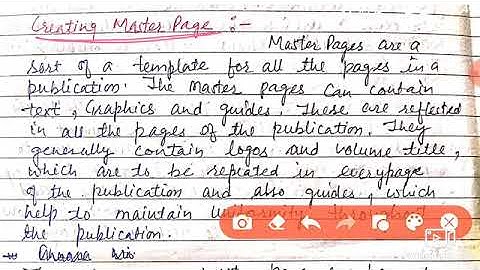 Creating Master Page :-
Master Pages are a
sort of a template for all the pages in a
publication. The Master pages can contain
text, Graphics and guides. These are reflected
in all the pages of the publication. They
generally contain logos and volume title,
which are to be repeated in everypage
of the publication and also guides, which
help to maintain uniformity throughout
the publication.
→ Choose